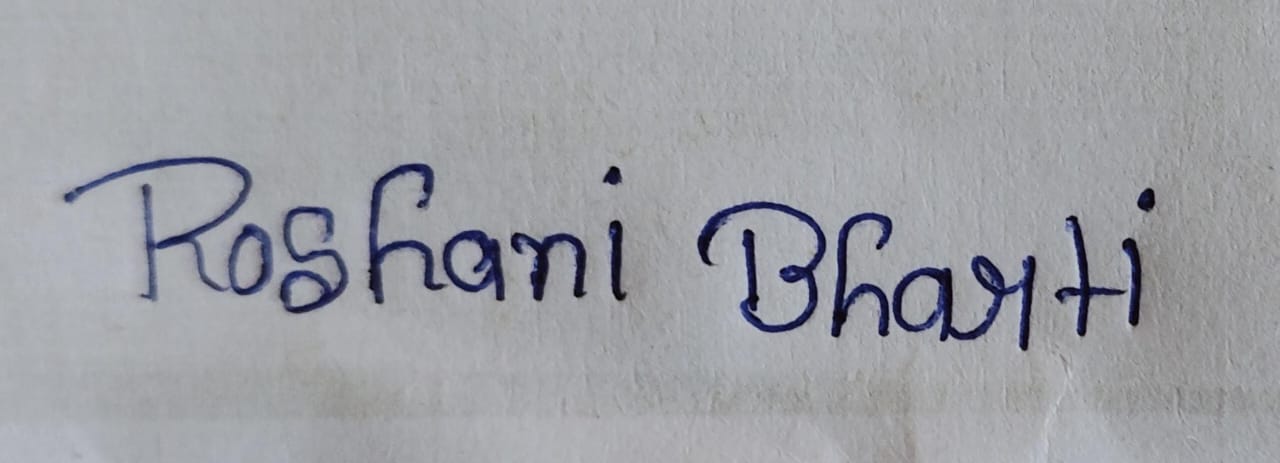 Roshani Bharti